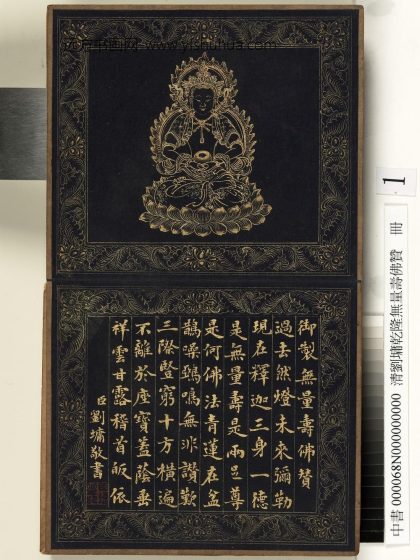 www.yishuhua.com
御製無量壽佛贊
過去然燈未來彌勒
現在釋迦三身一德
是無量壽是兩足尊
是何佛法青蓮在盆
鵲噪鴉鳴無非讚歎
三際豎窮十方橫遍
不離於座寶蓋蔭垂
祥雲甘露稽首皈依
臣劉墉敬書
1
中書 000068N000000000 清劉墉乾隆無量壽佛贊 冊